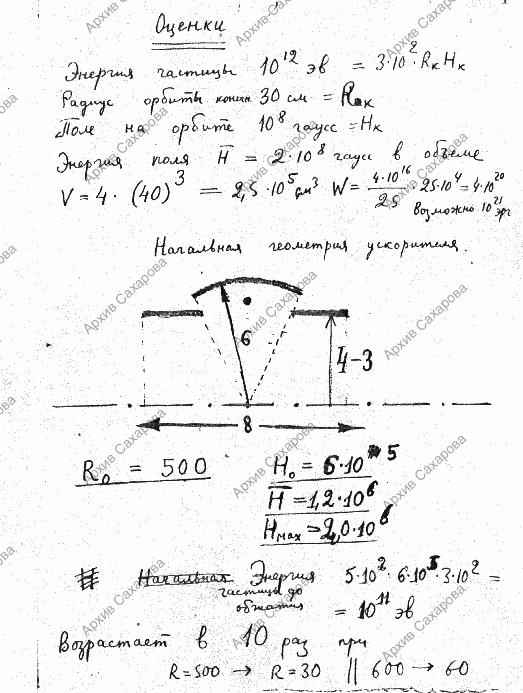 Оценки
Энергия частицы 10¹² эв = 3·10²·RкHк
Радиус орбиты конечн. 30 см = Rк
Поле на орбите 10⁸ гаусс = Hк
Энергия поля H̅ = 2·10⁸ гаусс в объеме
V = 4·(40)³ = 2,5·10⁵ см³ W = 4·10¹⁶/25 25·10⁴ = 4·10²⁰
возможно 10²¹ эрг
Начальная геометрия ускорителя.
6
4-3
8
R₀ = 500 H₀ = 6·10⁵
H̅ = 1,2·10⁶
Hмах = 2,0·10⁶
Начальная Энергия 5·10²·6·10⁵·3·10² =
частицы до
обжатия = 10¹¹ эв
Возрастает в 10 раз при
R=500 → R=30 || 600 → 60
Архив Сахарова